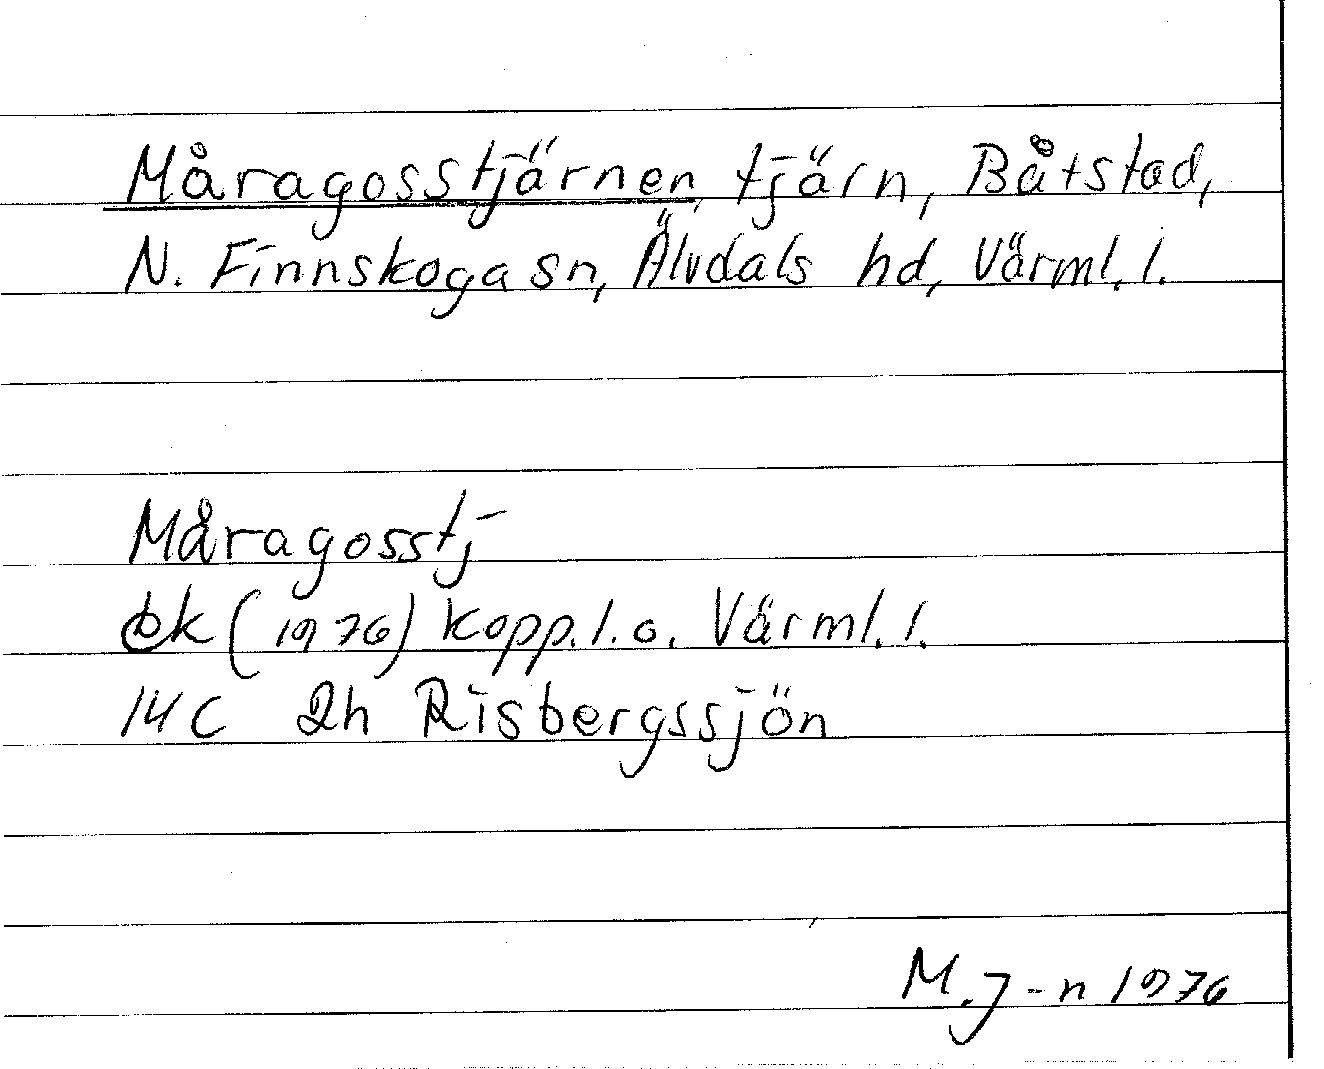 Måragosstjärnen, tjärn, Båtstad,
N. Finnskoga sn, Älvdals hd, Värml. l.
Måragosstj
ek (1976) Kopp. l. o. Värml. l.
14 C 2h Risbergssjön
M. J-n 1976